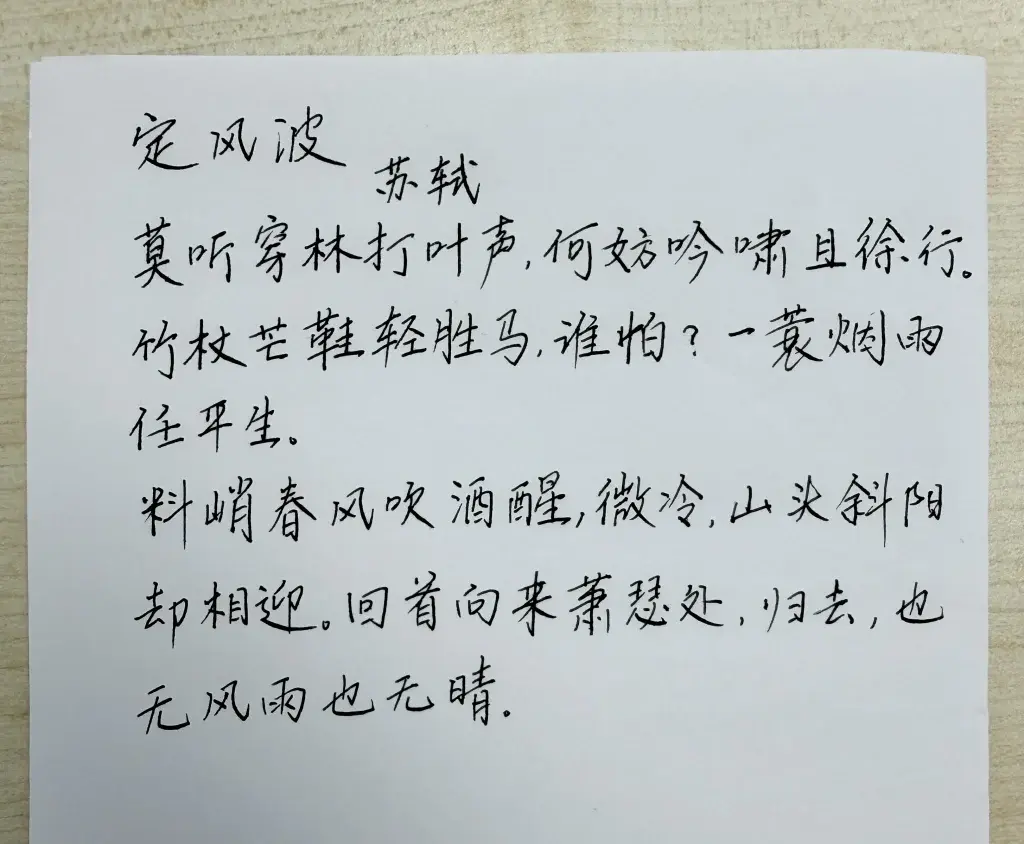 定风波
苏轼
莫听穿林打叶声,何妨吟啸且徐行。
竹杖芒鞋轻胜马,谁怕?一蓑烟雨
任平生。
料峭春风吹酒醒,微冷,山头斜阳
却相迎。回首向来萧瑟处,归去,也
无风雨也无晴.